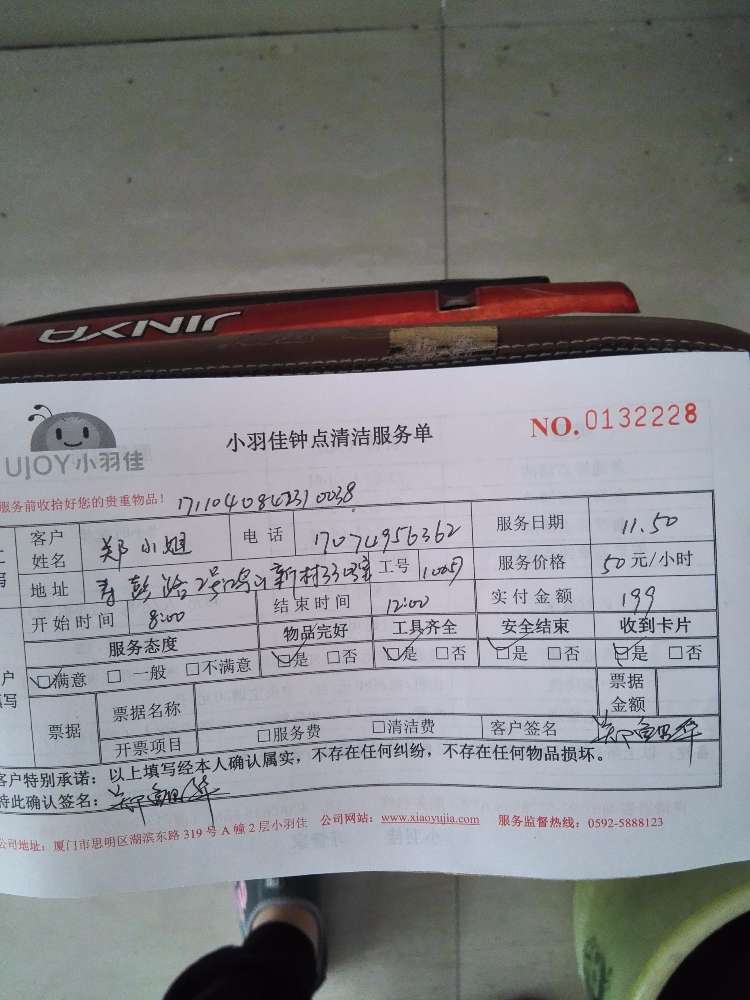 JINYA
UJOY小羽佳
小羽佳钟点清洁服务单
NO.0132228
服务前收拾好您的贵重物品!
客户姓名 郑小姐 电话 17074956362 服务日期 11.50
地址 2号 新村33 工号 服务价格 50元/小时
开始时间 8:00 结束时间 12:00 实付金额 199
服务态度 物品完好 工具齐全 安全结束 收到卡片
满意 □一般 □不满意 是 □否 是 □否 是 □否 是 □否
票据 票据名称 票据金额
开票项目 □服务费 □清洁费 客户签名
客户特别承诺:以上填写经本人确认属实,不存在任何纠纷,不存在任何物品损坏。
特此确认签名:
公司地址:厦门市思明区湖滨东路319号A幢2层小羽佳 公司网站:www.xiaoyujia.com 服务监督热线:0592-5888123